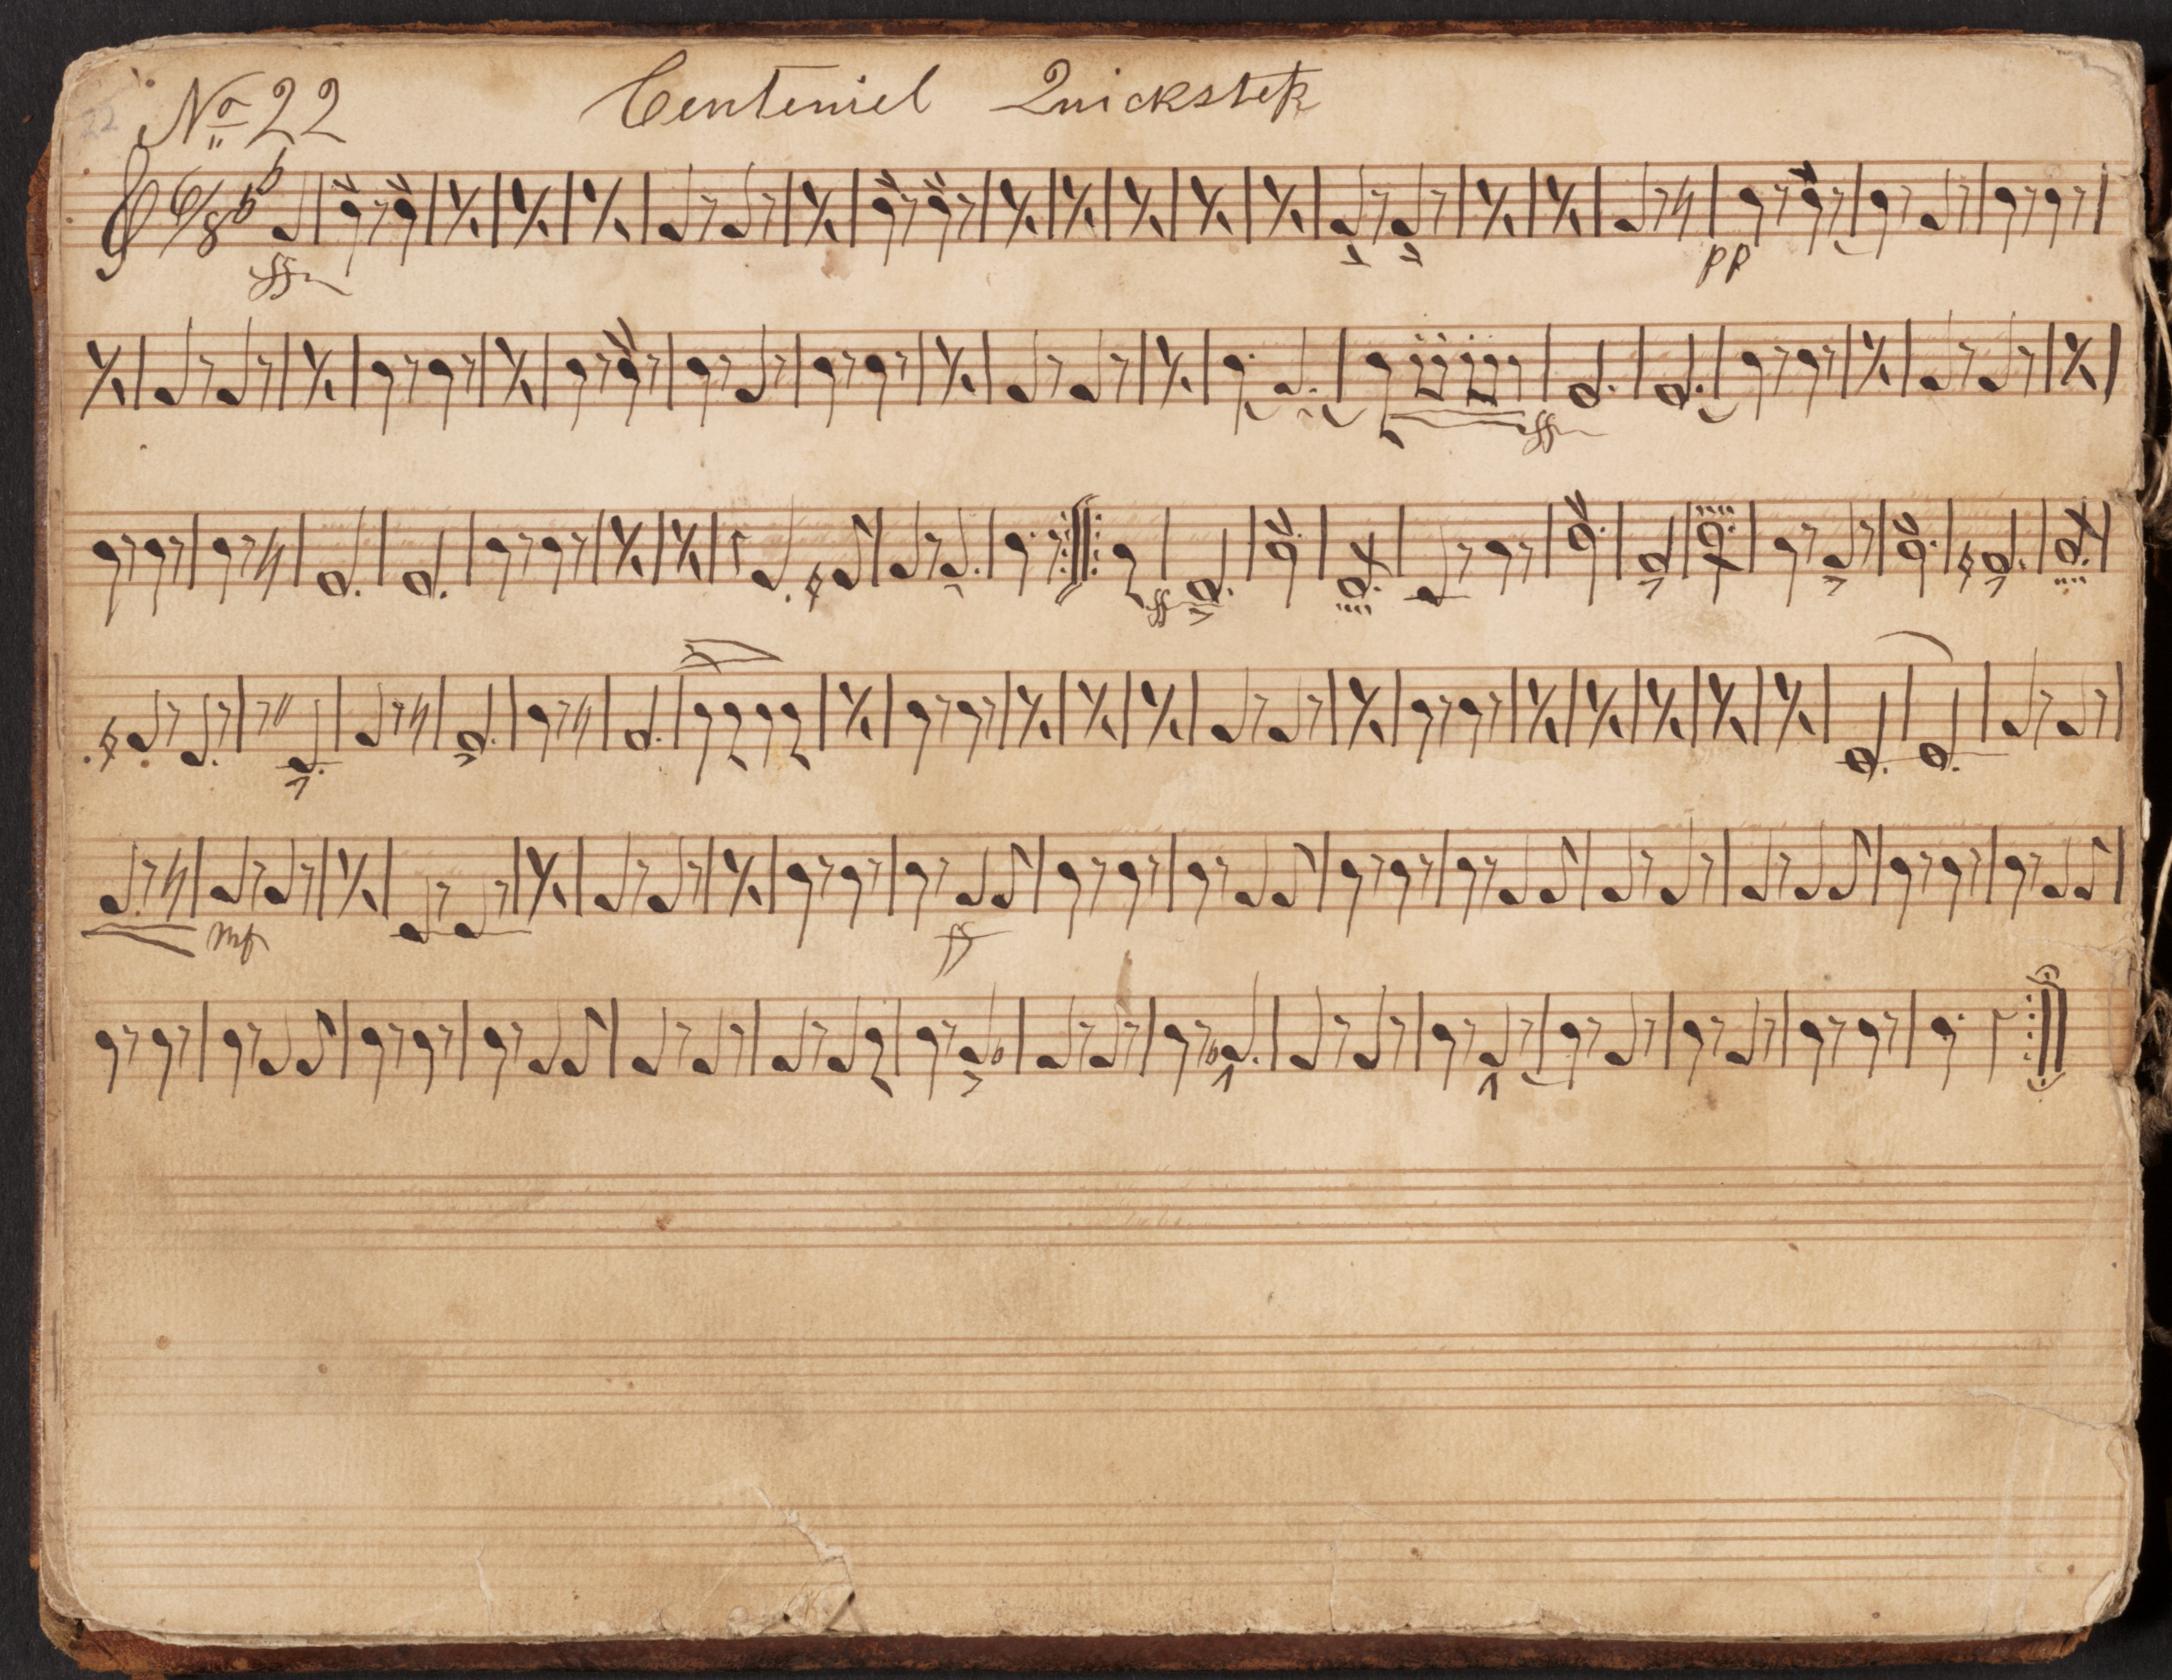 No 22 Centeniel Quickstep
22
6/8
ff
pp
ff
ff
mf